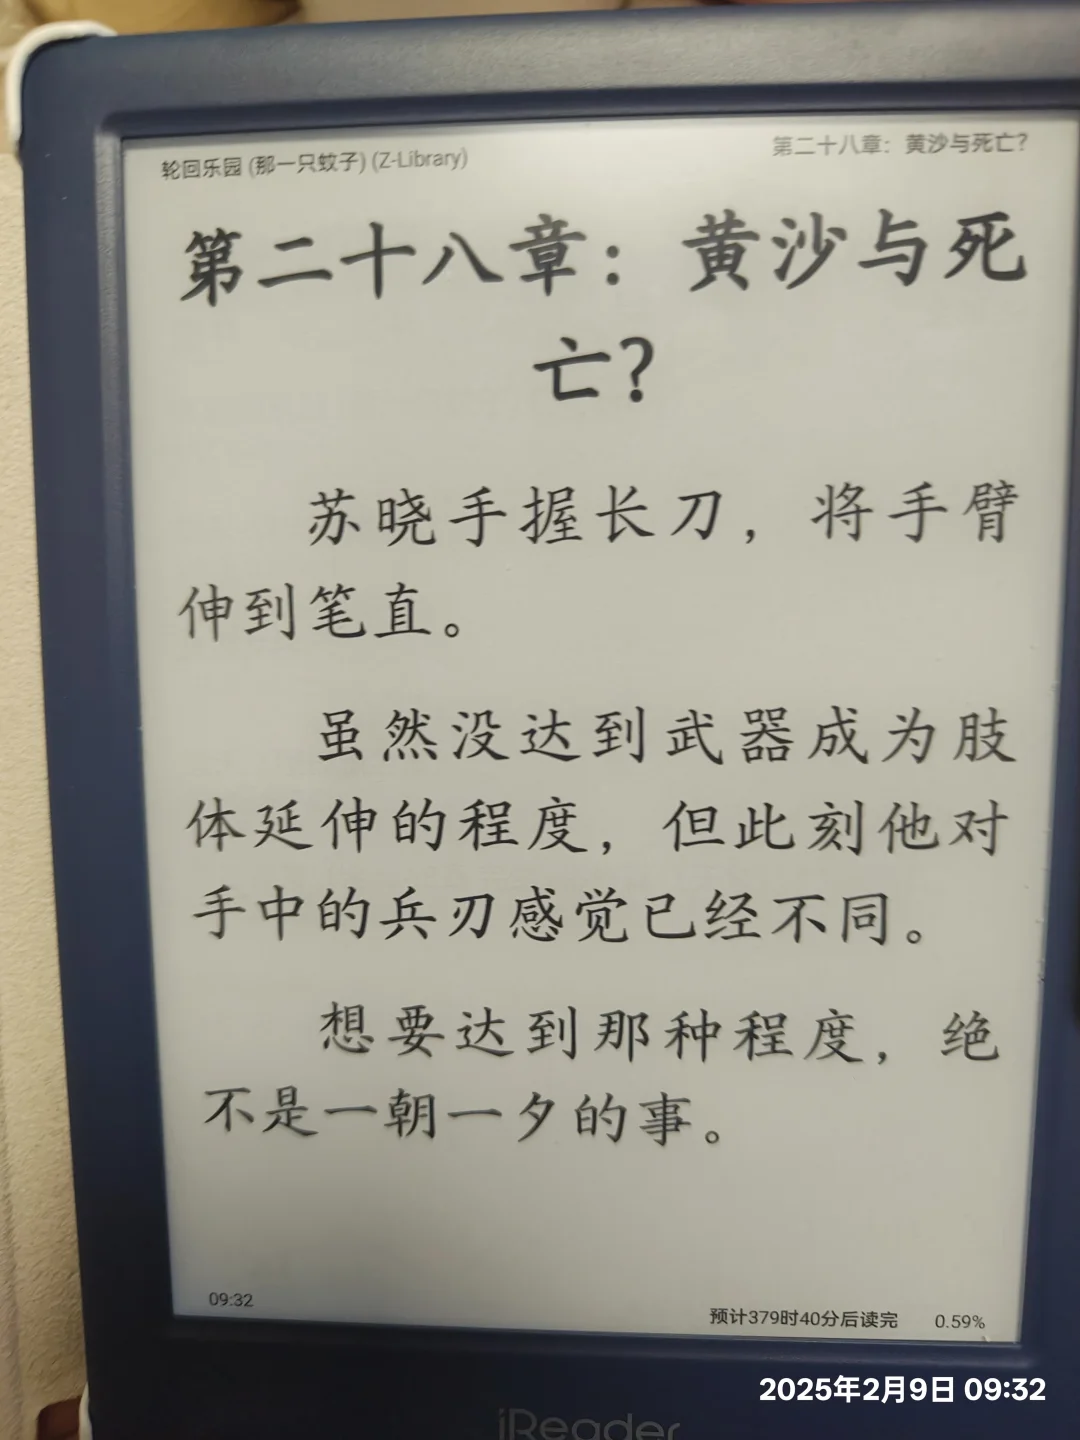 轮回乐园 (那一只蚊子) (Z-Library)
第二十八章：黄沙与死亡？
第二十八章：黄沙与死
亡？
苏晓手握长刀，将手臂
伸到笔直。
虽然没达到武器成为肢
体延伸的程度，但此刻他对
手中的兵刃感觉已经不同。
想要达到那种程度，绝
不是一朝一夕的事。
09:32
预计379时40分后读完
0.59%
2025年2月9日 09:32
iReader